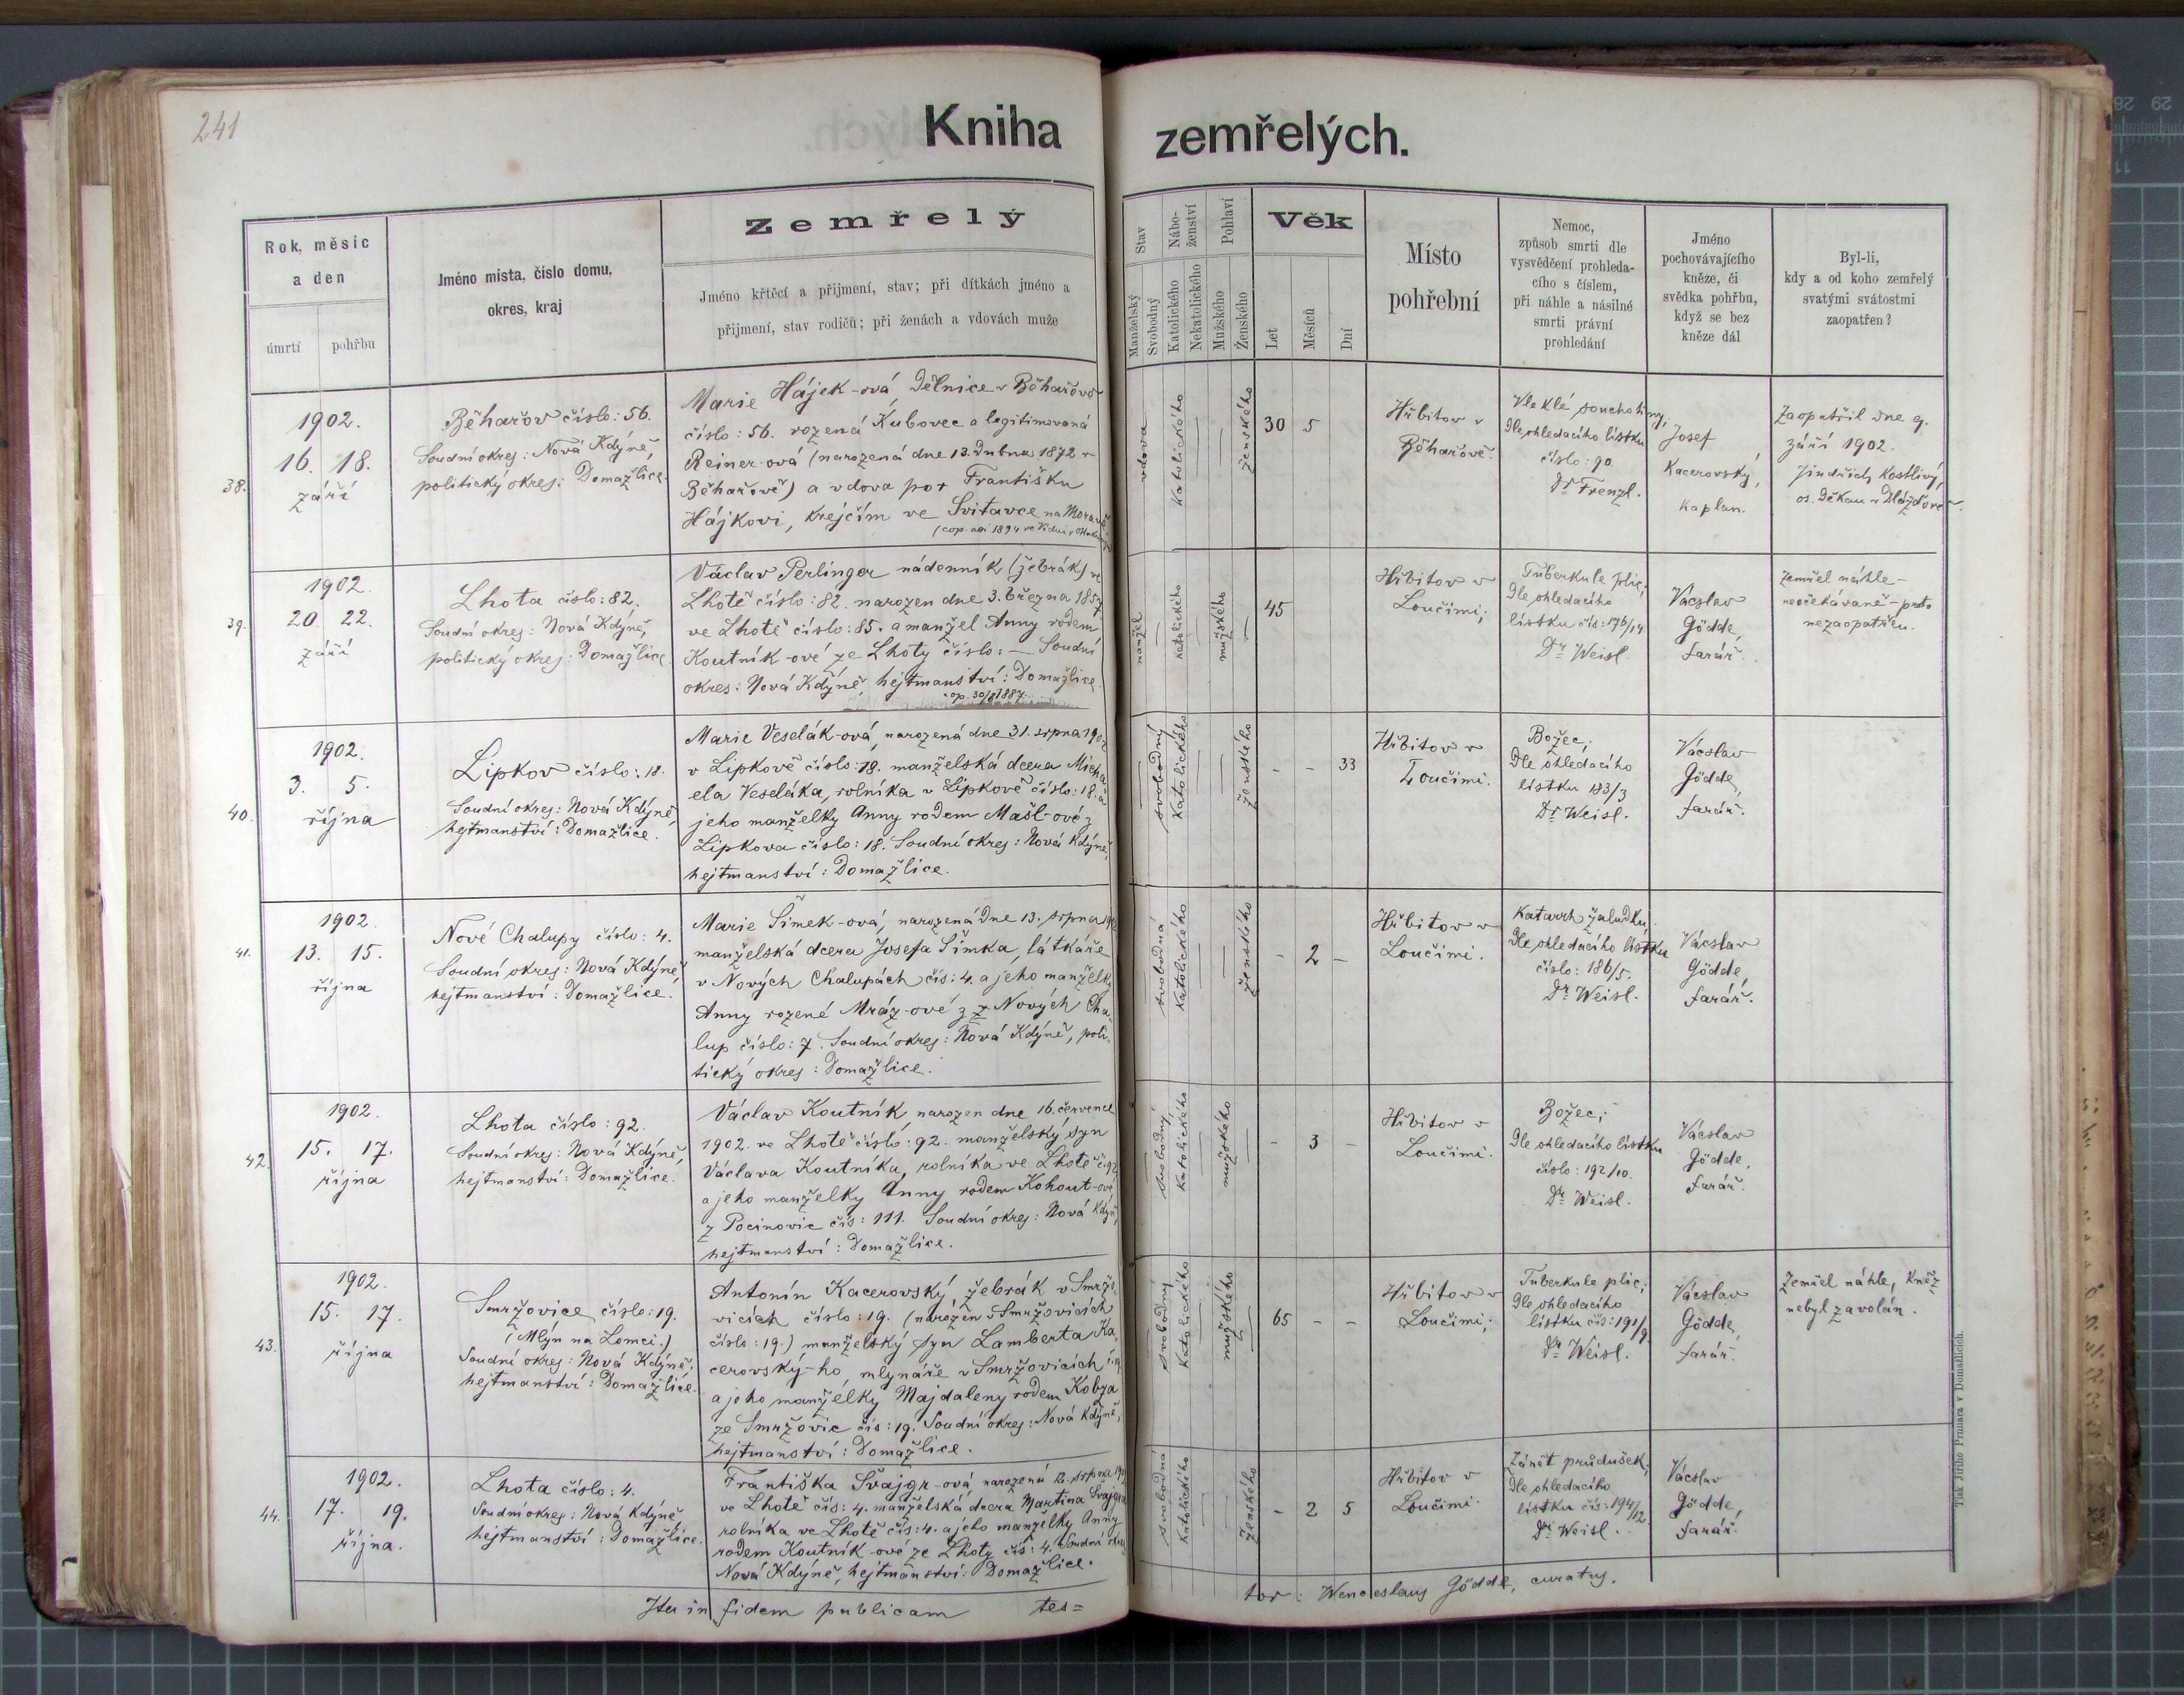 241
Kniha zemřelých.
Rok, měsíc
a den
úmrtí
pohřbu
Jméno místa, číslo domu,
okres, kraj
Zemřelý
Jméno křtěcí a přijmení, stav; při dítkách jméno a
přijmení, stav rodičů; při ženách a vdovách muže
Stav
Manželský
Svobodný
Nábo-
ženství
Katolického
Nekatolického
Pohlaví
Mužského
Ženského
Věk
Let
Měsíců
Dní
Místo
pohřební
Nemoc,
způsob smrti dle
vysvědčení prohleda-
cího s číslem,
při náhle a násilné
smrti právní
prohledání
Jméno
pochovávajícího
kněze, či
svědka pohřbu,
když se bez
kněze dál
Byl-li,
kdy a od koho zemřelý
svatými svátostmi
zaopatřen?
38.
1902.
16. 18.
září
Běhařov číslo: 56.
Soudní okres: Nová Kdýně,
politický okres: Domažlice.
Marie Hájek-ová, dělnice v Běhařově
číslo: 56. rozená Kubovec a legitimovaná
Reiner-ová (narozená dne 13. dubna 1872 v
Běhařově) a vdova por Františku
Hájkovi, krejčím ve Svitavce na Moravě
vdova
Katolického
ženského
30 5
Hřbitov v
Běhařově.
Vleklé souchotiny;
Dle ohledacího lístku
číslo: 90.
Dr Frenzl.
Josef
Kacerovský,
kaplan.
Zaopatřil dne 9.
září 1902.
Jindřich Kostlivý,
os. děkan v Dlažďově.
39.
1902.
20 22.
září
Lhota číslo: 82.
Soudní okres: Nová Kdýně,
politický okres: Domažlice.
Václav Perlinger nádenník (žebrák) ve
Lhotě číslo: 82. narozen dne 3. března 1857
ve Lhotě číslo: 85. a manžel Anny rodem
Koutník-ové ze Lhoty číslo: — Soudní
okres: Nová Kdýně, hejtmanství: Domažlice
cop. 30/8 1887.
manžel
katolického
mužského
45
Hřbitov v
Loučimi;
Tuberkule plic;
Dle ohledacího
lístku čís: 176/14
Dr Weisl.
Vácslav
Gödde,
farář.
Zemřel náhle-
neočekávaně - proto
nezaopatřen.
40.
1902.
3. 5.
října
Lipkov číslo: 18.
Soudní okres: Nová Kdýně,
hejtmanství: Domažlice.
Marie Veselák-ová, narozená dne 31. srpna 1902
v Lipkově číslo: 18. manželská dcera Micha
ela Veseláka, rolníka v Lipkově číslo: 18. a
jeho manželky Anny rodem Mašl-ové z
Lipkova číslo: 18. Soudní okres: Nová Kdýně,
hejtmanství: Domažlice.
svobodný
Katolického
ženského
- - 33
Hřbitov v
Loučimi.
Božec;
Dle ohledacího
lístku 183/3
Dr Weisl.
Vácslav
Gödde,
farář.
41.
1902.
13. 15.
října
Nové Chalupy číslo: 4.
Soudní okres: Nová Kdýně,
hejtmanství: Domažlice.
Marie Šimek-ová, narozená dne 13. srpna 1902
manželská dcera Josefa Šimka, látkáře
v Nových Chalupách čís: 4. a jeho manželky
Anny rozené Mráz-ové z Nových Cha-
lup číslo: 7. Soudní okres: Nová Kdýně, poli-
tický okres: Domažlice.
svobodná
Katolického
ženského
- 2 -
Hřbitov v
Loučimi.
Katarrh žaludku;
Dle ohledacího lístku
číslo: 186/5.
Dr Weisl.
Vácslav
Gödde,
farář.
42.
1902.
15. 17.
října
Lhota číslo: 92.
Soudní okres: Nová Kdýně,
hejtmanství: Domažlice.
Václav Koutník, narozen dne 16. července
1902. ve Lhotě číslo: 92. manželský syn
Václava Koutníka, rolníka ve Lhotě č. 92
a jeho manželky Anny rodem Kohout-ové
z Pocinovic čís: 111. Soudní okres: Nová Kdýně,
hejtmanství: Domažlice.
svobodný
Katolického
mužského
- 3 -
Hřbitov v
Loučimi.
Božec;
Dle ohledacího lístku
číslo: 192/10.
Dr Weisl.
Vácslav
Gödde,
farář.
43.
1902.
15. 17.
října
Smržovice číslo: 19.
(Mlýn na Lomci.)
Soudní okres: Nová Kdýně;
hejtmanství: Domažlice.
Antonín Kacerovský, žebrák v Smržo-
vicích číslo: 19. (narozen v Smržovicích
číslo: 19.) manželský syn Lamberta Ka-
cerovský-ho, mlynáře v Smržovicích č. 19
a jeho manželky Majdaleny rodem Kobza
ze Smržovic čís: 19. Soudní okres: Nová Kdýně,
hejtmanství: Domažlice.
svobodný
Katolického
mužského
65 - -
Hřbitov v
Loučimi;
Tuberkule plic;
Dle ohledacího
lístku čís: 191/9.
Dr Weisl.
Vácslav
Gödde,
farář.
Zemřel náhle, kněz
nebyl zavolán.
44.
1902.
17. 19.
října.
Lhota číslo: 4.
Soudní okres: Nová Kdýně
hejtmanství: Domažlice.
Františka Švajgr-ová, narozená 12. srpna 1902
ve Lhotě čís: 4. manželská dcera Martina Švajgra
rolníka ve Lhotě čís: 4. a jeho manželky Anny
rodem Koutník-ové ze Lhoty čís: 4. Soudní okres
Nová Kdýně, hejtmanství: Domažlice.
svobodná
Katolického
ženského
- 2 5
Hřbitov v
Loučimi.
Zánět průdušek;
Dle ohledacího
lístku čís: 194/12.
Dr Weisl.
Vácslav
Gödde,
farář.
Ita in fidem publicam tes=
tor: Wenceslaus Gödde, curatus.
Tisk Jiřího Prunara v Domažlicích.